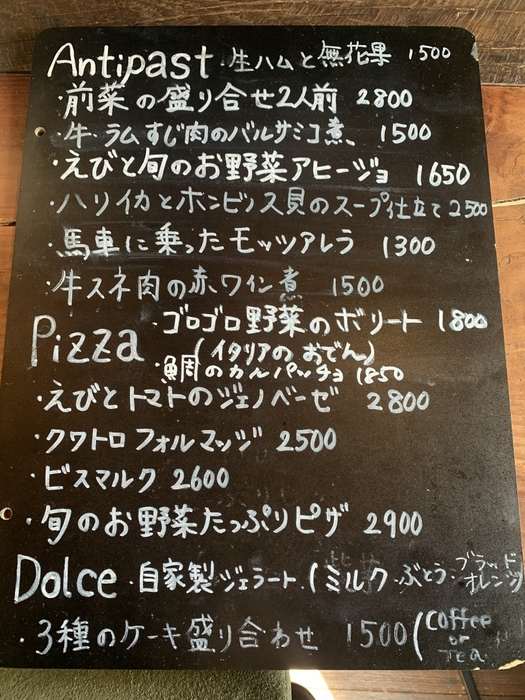 Antipast 生ハムと無花果 1500
・前菜の盛り合せ2人前 2800
・牛・ラムすじ肉のバルサミコ煮、 1500
・えびと旬のお野菜アヒージョ 1650
・ハリイカとホンビノス貝のスープ仕立て 2500
・馬車に乗ったモッツアレラ 1300
・牛スネ肉の赤ワイン煮 1500
Pizza ・ゴロゴロ野菜のボリート 1800
(イタリアのおでん)
・鯛のカルパッチョ 1850
・えびとトマトのジェノベーゼ 2800
・クワトロフォルマッジ 2500
・ビスマルク 2600
・旬のお野菜たっぷりピザ 2900
Dolce ・自家製ジェラート (ミルク・ぶどう・ブラッドオレンジ)
・3種のケーキ盛り合わせ 1500 (Coffee
or
Tea